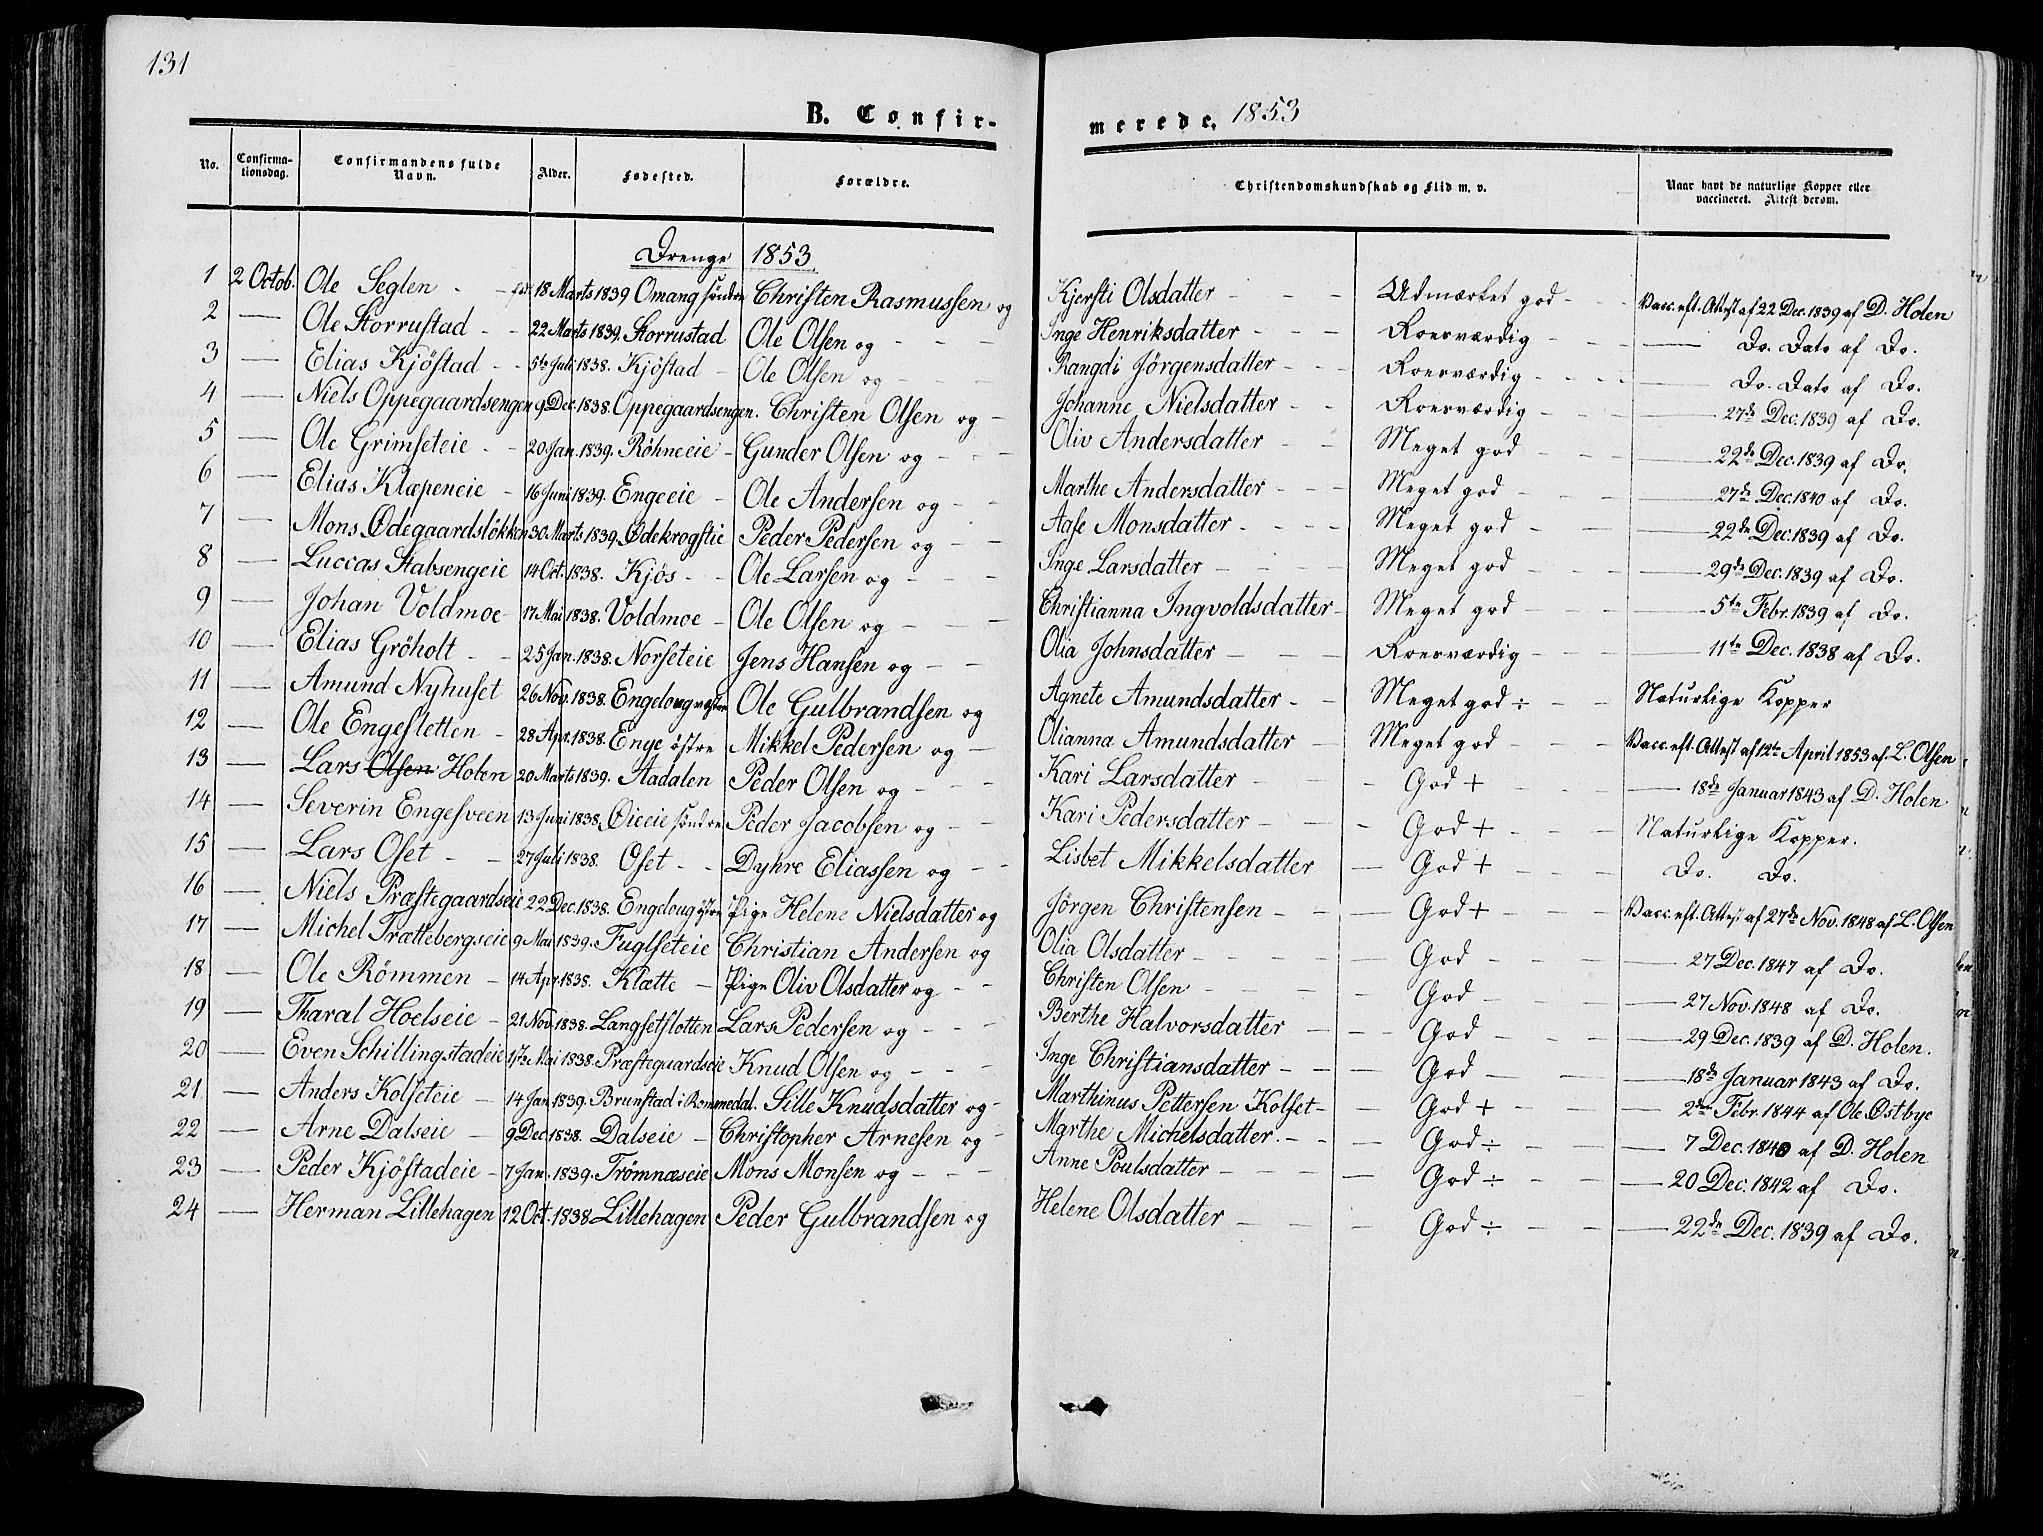 131
B. Confirmerede. 1853
No. Confirmationsdag. Confirmandens fulde Navn. Alder. Fødested. Forældre. Christendomskundskab og Flid m. v. Naar havt de naturlige Kopper eller vaccineret. Attest derom.
Drenge 1853.
1 2 Octob. Ole Seglen - - 18 Marts 1839 Omang søndre Christen Rasmussen og Kjersti Olsdatter - - - Udmærket god - - Vacc. eft. Attest af 22 Dec. 1839 af D. Holen
2 — Ole Storrustad - - 22 Marts 1839. Storrustad Ole Olsen og - - - Inge Henriksdatter - - - Roesværdig - - - — Do. Dato af Do.
3 — Elias Kjöstad - - 5te Juli 1838. Kjöstad - Ole Olsen og - - - Rangdi Jörgensdatter - - - Roesværdig - - - — Do. Dato af Do.
4 — Niels Oppegaardsengen 9 Dec. 1838. Oppegaardsengen. Christen Olsen og - Johanne Nielsdatter - - Roesværdig - - - — 27de Dec. 1839 af Do.
5 — Ole Grimseteie - - 20 Jan. 1839. Røhneeie - Gunder Olsen og - - - Oliv Andersdatter - - Meget god - - - — 22de Dec. 1839 af Do.
6 — Elias Klæpeneie - 16 Juni 1839. Engeeie - Ole Andersen og - - Marthe Andersdatter - - - Meget god - - - — 27de Dec. 1840 af Do.
7 — Mons Ødegaardslökken 30 Marts 1839. Ødekrogstie Peder Pedersen og - - Aase Monsdatter - - - - Meget god - - — 22de Dec. 1839 af Do.
8 — Luccas Stabsengeie 14 Oct. 1838. Kjös - - Ole Larsen og - - - Inge Larsdatter - - - Meget god - - - — 29de Dec. 1839 af Do.
9 — Johan Voldmoe - 17 Mai 1838. Voldmoe - Ole Olsen og - - - Christianna Ingvoldsdatter - Meget god - - - — 5te Febr. 1839 af Do.
10 — Elias Gröholt - - 25 Jan. 1838. Norseteie Jens Hansen og - - Olia Johnsdatter - - - Roesværdig - - - — 11te Dec. 1838 af Do.
11 — Amund Nyhuset 26 Nov. 1838. Engeloug vestre Ole Gulbrandsen og Agnete Amundsdatter - - Meget god ÷ - - Naturlige Kopper
12 — Ole Engesletten - 28 Apr. 1838. Enge östre Mikkel Pedersen og - Olianna Amundsdatter - Meget god - - - Vacc. eft. Attest af 12te April 1853 af L. Olsen
13 — Lars Olsen Holen 20 Marts 1839. Aadalen Peder Olsen og - - - Kari Larsdatter - - - God + - - — 18de Januar 1843 af D. Holen
14 — Severin Engesveen 13 Juni 1838. Øieeie søndre Peder Jacobsen og - - Kari Pedersdatter - - - God + - - - Naturlige Kopper.
15 — Lars Oset - - 27 Juli 1838. Oset - - Dyhre Eliassen og - Lisbet Mikkelsdatter - God + - - - Do. Do.
16 — Niels Præstegaardseie 22 Dec. 1838. Engeloug östre Pige Helene Nielsdatter og Jörgen Christensen - - - God + - - Vacc. eft. Attest af 27de Nov. 1848 af L. Olsen
17 — Michel Trættebergseie 9 Mai 1839. Fuglseteie Christian Andersen og Olia Olsdatter - - - - - God - - - — 27 Dec. 1847 af Do.
18 — Ole Römmen - 14 Apr. 1838. Klætte - Pige Oliv Olsdatter og - - Christen Olsen - - - - - God - - - — 27 Nov. 1848 af Do.
19 — Tharal Hoelseie - 21 Nov. 1838. Langsetslotten Lars Pedersen og - - - Berthe Halvorsdatter - - - God - - - — 29 Dec. 1839 af D. Holen.
20 — Even Schillingstadeie 17de Mai 1838. Præstegaardseie Knud Olsen og - - - Inge Christiansdatter - - - God - - - — 18de Januar 1843 af Do.
21 — Anders Kolseteie - 14 Jan. 1839. Brunstad i Rommedal. Sille Knudsdatter og - Marthinus Pettersen Kolset - - God + - - - — 2den Febr. 1844 af Ole Østbye
22 — Arne Dalseie - 9 Dec. 1838. Dalseie - Christopher Arnesen og - Marthe Michelsdatter. - - - God ÷ - - — 7 Dec. 1840 af D. Holen
23 — Peder Kjöstadeie - 7 Jan. 1839. Trömnæseie Mons Monsen og - - - Anne Poulsdatter - - - - God ÷ - - — 20 Dec. 1842 af Do.
24 — Herman Lillehagen 12 Oct. 1838. Lillehagen Peder Gulbrandsen og Helene Olsdatter - - - - God ÷ - - — 22de Dec. 1839 af Do.